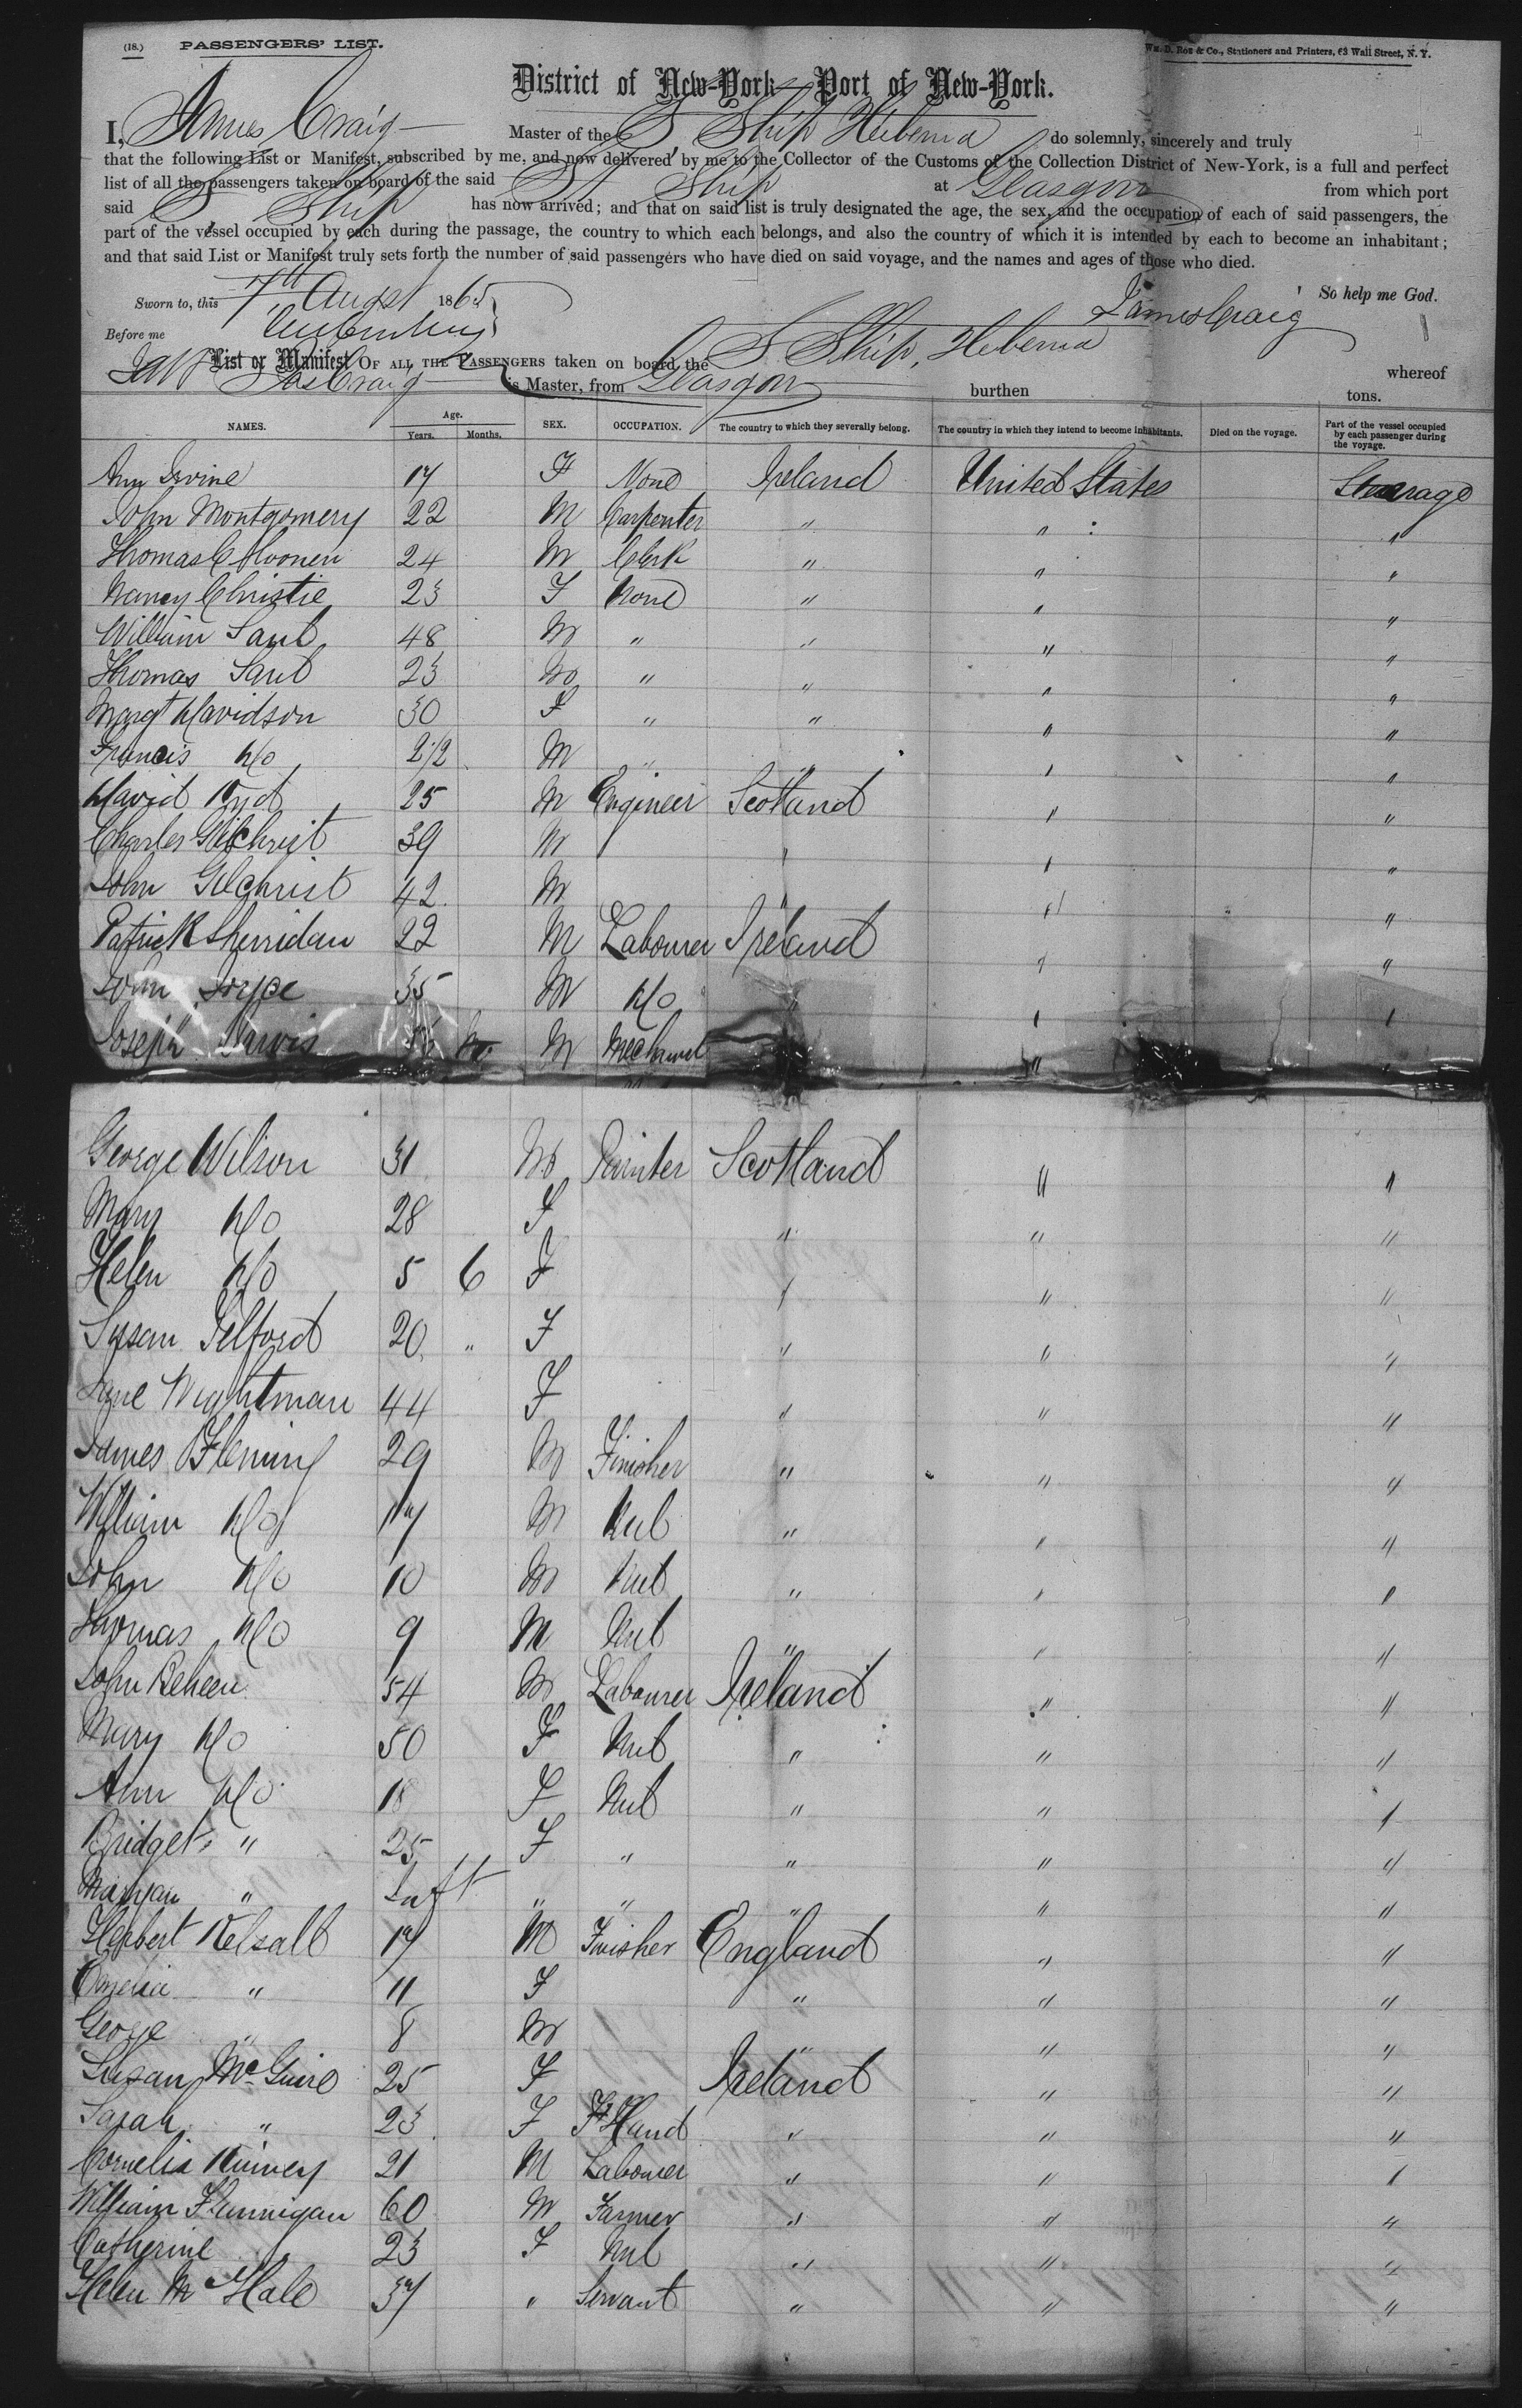 (18.) PASSENGERS' LIST. Wm. D. Roe & Co., Stationers and Printers, 63 Wall Street, N. Y.
District of New-York—Port of New-York.
I, James Craig Master of the S. Ship Hibernia do solemnly, sincerely and truly
that the following List or Manifest, subscribed by me, and now delivered by me to the Collector of the Customs of the Collection District of New-York, is a full and perfect
list of all the passengers taken on board of the said S. Ship at Glasgow from which port
said S. Ship has now arrived; and that on said list is truly designated the age, the sex, and the occupation of each of said passengers, the
part of the vessel occupied by each during the passage, the country to which each belongs, and also the country of which it is intended by each to become an inhabitant;
and that said List or Manifest truly sets forth the number of said passengers who have died on said voyage, and the names and ages of those who died.
Sworn to, this 7th Augst 1865 So help me God.
James Craig
Before me
List or Manifest OF ALL THE PASSENGERS taken on board the S Ship, Hibernia whereof
Jas Craig is Master, from Glasgow burthen tons.
NAMES. Age. Years. Months. SEX. OCCUPATION. The country to which they severally belong. The country in which they intend to become inhabitants. Died on the voyage. Part of the vessel occupied by each passenger during the voyage.
Ann Irvine 17 F None Ireland United States Steerage
John Montgomery 22 M Carpenter " " "
Thomas 24 M Clerk " " "
Nancy Christie 23 F None " " "
William 48 M " " " "
Thomas 23 M " " " "
Margt Davidson 30 F " " " "
Francis Do 2 1/2 M " " " "
David Kyd 25 M Engineer Scotland " "
Charles Gilchrist 39 M " " "
John Gilchrist 42 M " " "
Patrick Sherridan 22 M Labourer Ireland " "
John Joyce 35 M Do " " "
Joseph M " "
George Wilson 31 M Painter Scotland " "
Mary Do 28 F " " "
Helen Do 5 6 F " " "
Susan Telford 20 " F " " "
Jane Wightman 44 F " " "
James Fleming 29 M Finisher " " "
William Do 17 M Nil " " "
John Do 10 M Nil " " "
Thomas Do 9 M Nil " " "
John Beheen 54 M Labourer Ireland " "
Mary Do 50 F Nil " " "
Ann Do 18 F Nil " " "
Bridget " 25 F " " " "
Maryan " Inft " " " " "
Herbert Kelsall 17 M Finisher England " "
Emelia " 11 F " " "
George " 8 M " " "
Susan McGuire 25 F Ireland " "
Sarah " 23 F F Hand " " "
Cornelia 21 M Labourer " " "
William Flannigan 60 M Farmer " " "
Catherine 23 F Nil " " "
Helen McHale 37 " Servant " " "